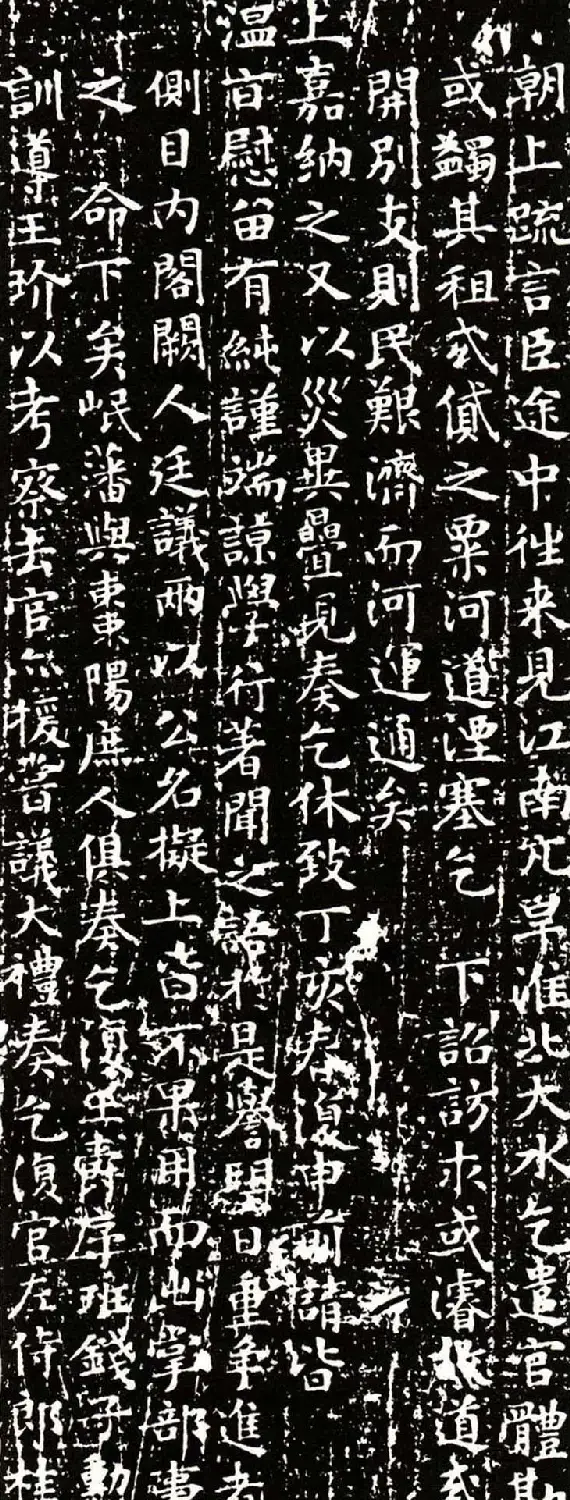 朝上疏言臣途中往来見江南亢旱淮北大水乞遣官體勘
或蠲其租或貸之粟河道湮塞乞下詔訪求或濬
道或
開別支則民艱濟而河運通矣
上嘉納之又以災異疊見奏乞休致丁亥春復申前請皆
温旨慰留有純謹端諒學行著聞之語於是譽望日重爭進者
側目内閣闕人廷議兩以公名擬上皆不果用而出掌部事
之命下矣岷藩與東陽庶人俱奏乞復王爵序班錢子勳
訓導王玠以考察去官亦援晉議大禮奏乞復官左侍郎桂